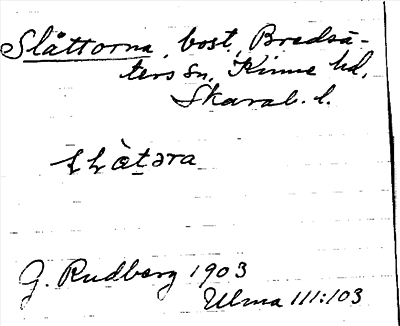 Slåttorna, bost., Bredsä-
ters sn, Kinne hd,
Skarab. l.
G. Rudberg 1903
Ulma 111:103